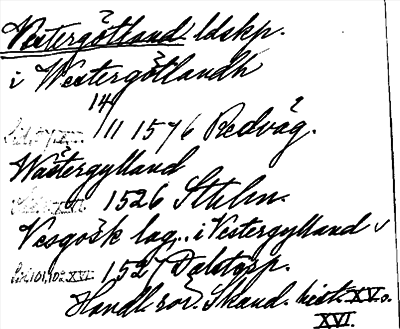 Vestergötland ldskp.
i Westergötlandh
14/111 1576 Redväg.
Wästergylland
1526 Sthlm.
Vesgösk lag, i Vestergylland
1527
Handl. rör. Skand. hist. XV o.
XVI.